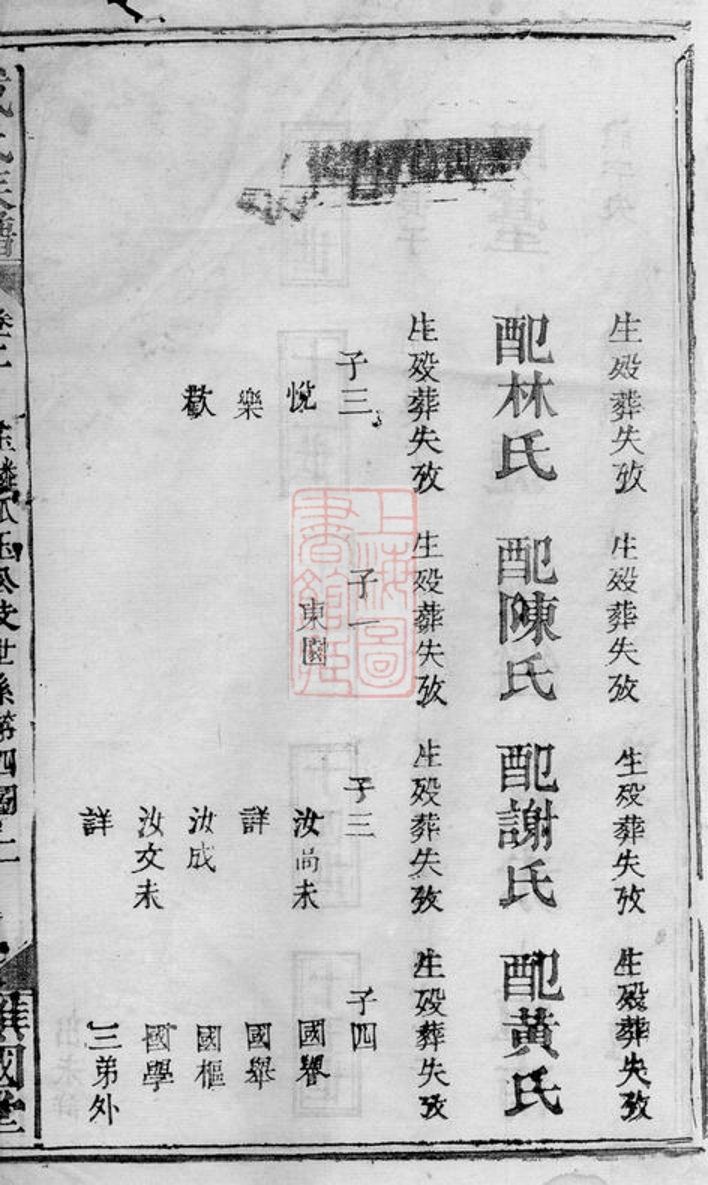 生殁葬失攷
配林氏
生殁葬失攷
子三
悅
樂
歡
生殁葬失攷
配陳氏
生殁葬失攷
子一
東園
生殁葬失攷
配謝氏
生殁葬失攷
子三
汝尚未
詳
汝成
汝文未
詳
生殁葬失攷
配黃氏
生殁葬失攷
子四
國譽
國舉
國樞
國學
三弟外
上海圖
書館藏